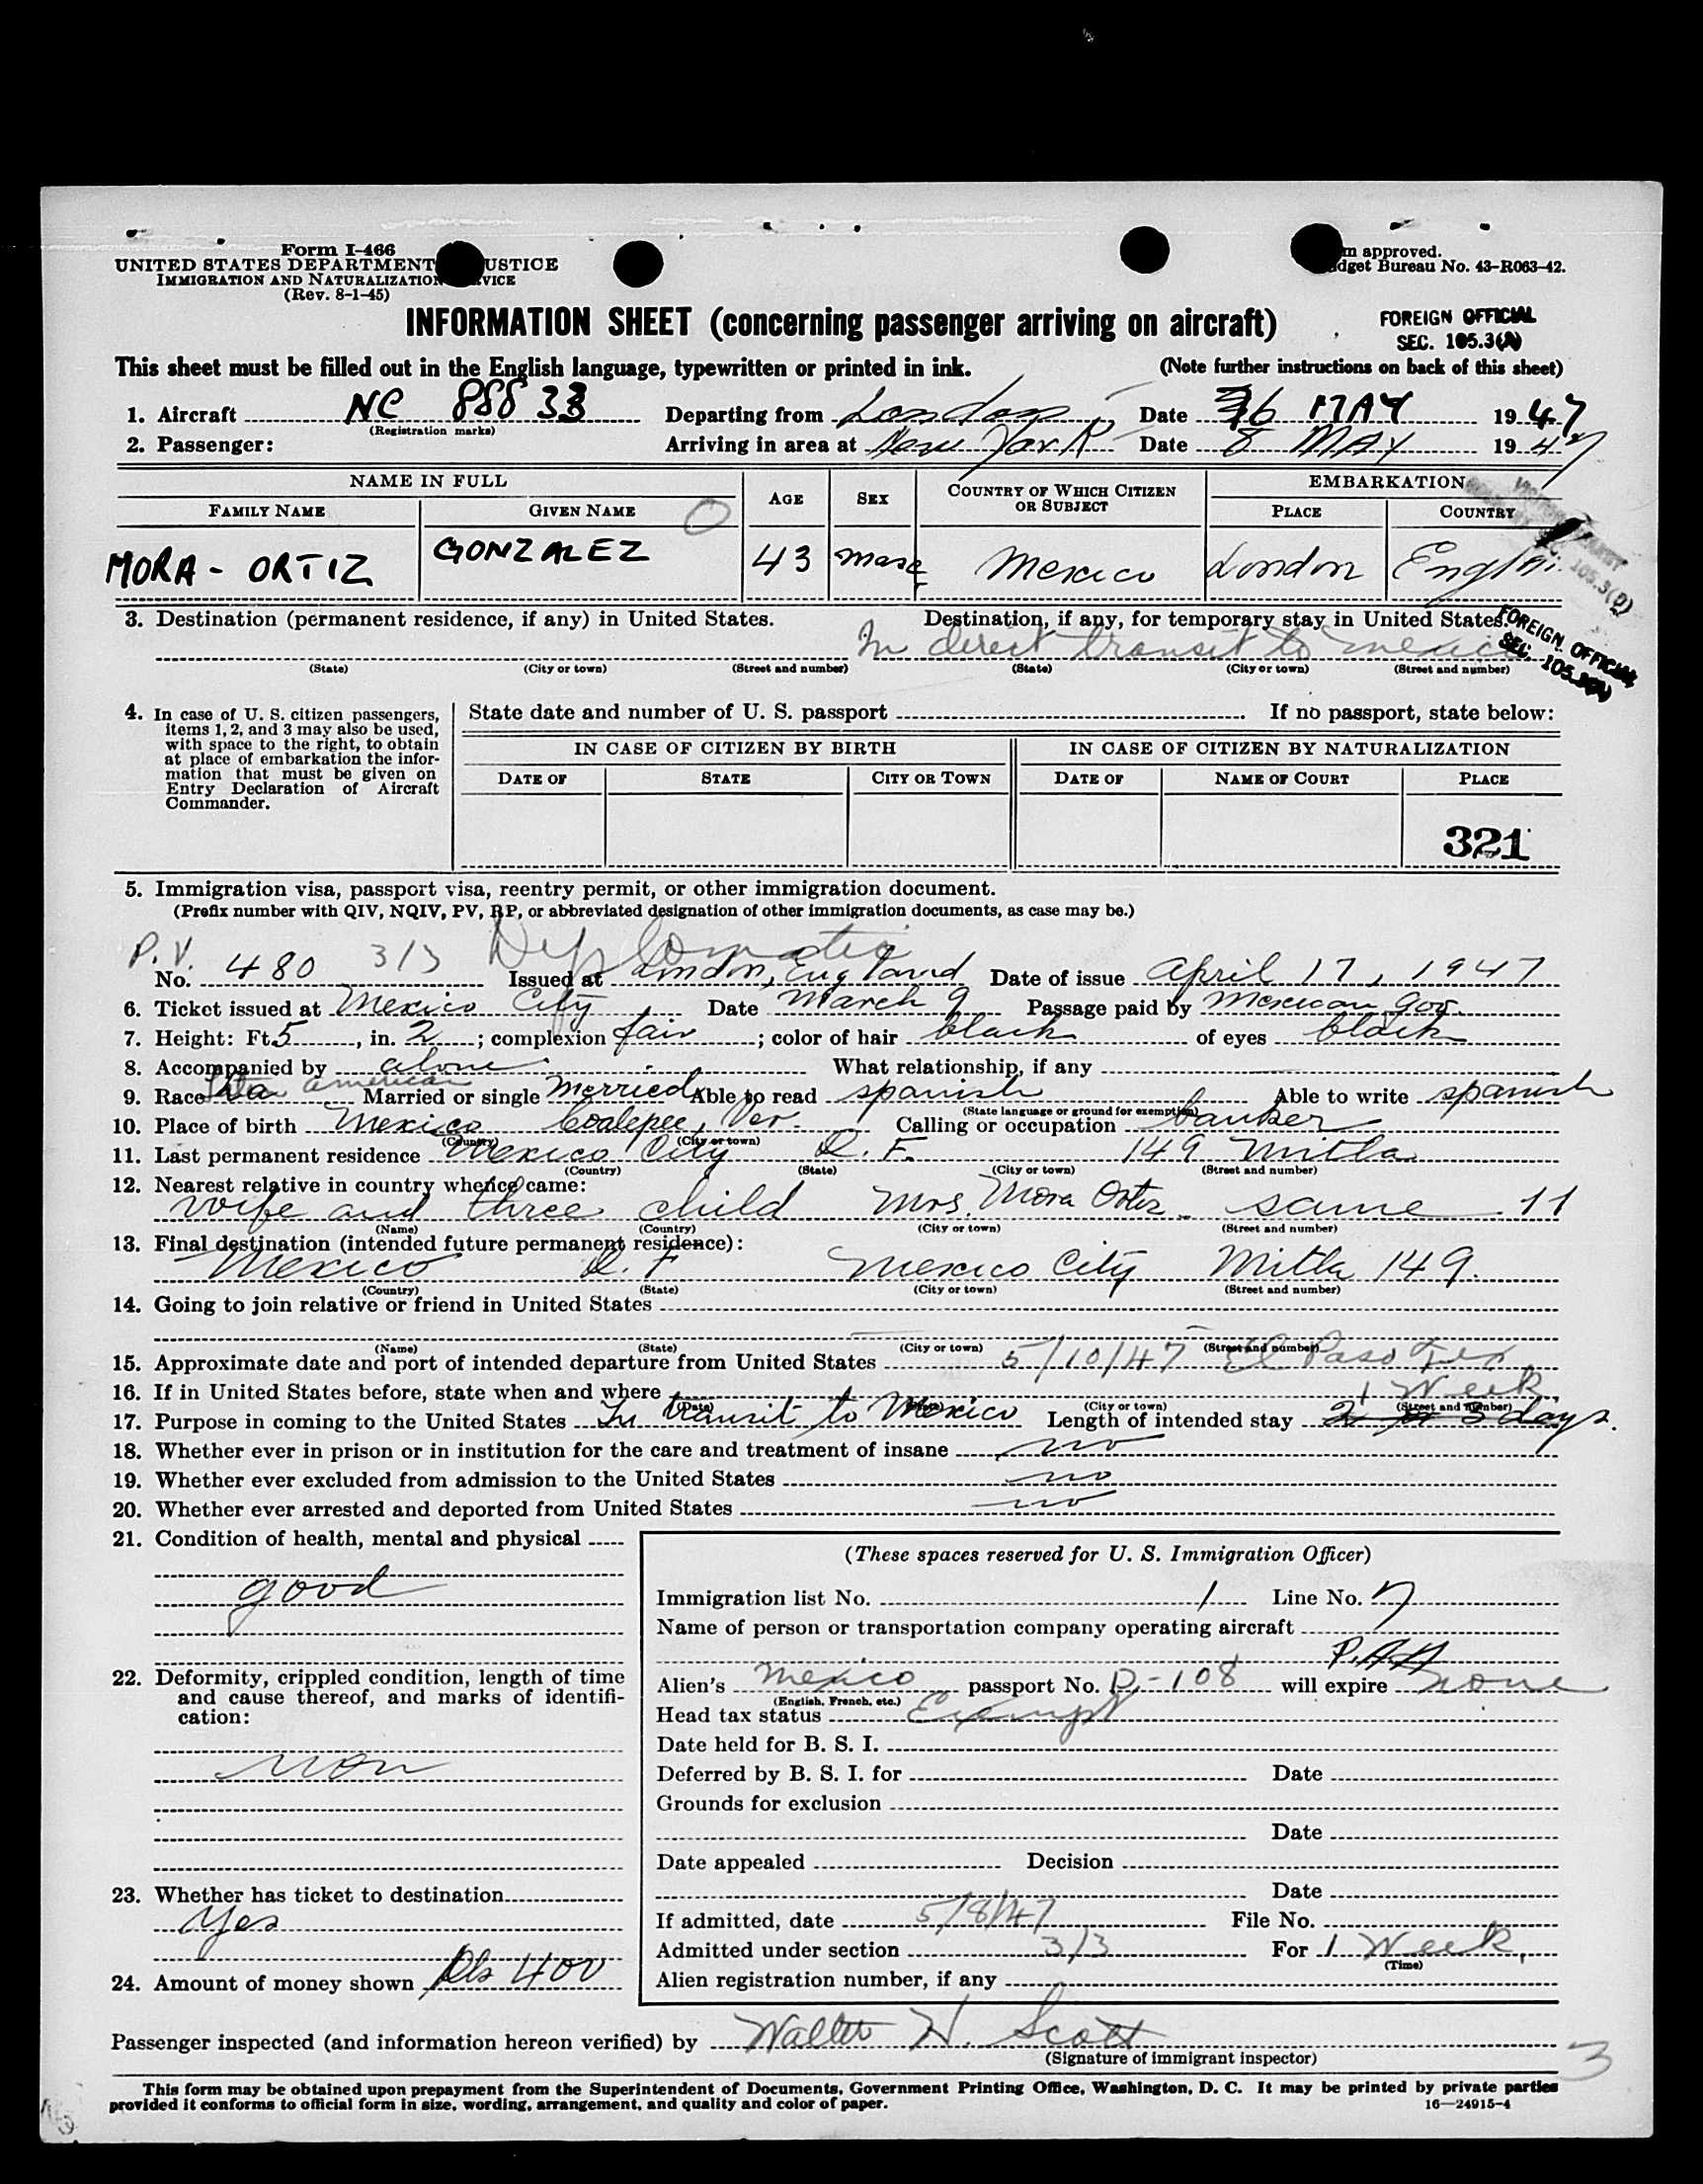 Form I-466
UNITED STATES DEPARTMENT USTICE
IMMIGRATION AND NATURALIZATION VICE
(Rev. 8-1-45)
m approved.
dget Bureau No. 43-R063-42.
INFORMATION SHEET (concerning passenger arriving on aircraft)
FOREIGN OFFICIAL
SEC. 105.3(A)
This sheet must be filled out in the English language, typewritten or printed in ink. (Note further instructions on back of this sheet)
1. Aircraft NC 88833 Departing from London Date 6 MAY 1947
(Registration marks)
2. Passenger: Arriving in area at New York Date 8 MAY 1947
NAME IN FULL AGE SEX COUNTRY OF WHICH CITIZEN OR SUBJECT EMBARKATION
FAMILY NAME GIVEN NAME PLACE COUNTRY
MORA - ORTIZ GONZALEZ 43 masc Mexico London England
105.3(D)
3. Destination (permanent residence, if any) in United States. Destination, if any, for temporary stay in United States.
In direct transit to mexico
FOREIGN OFFICIAL
SEC. 105.3(A)
(State) (City or town) (Street and number) (State) (City or town) (Street and number)
4. In case of U. S. citizen passengers, items 1, 2, and 3 may also be used, with space to the right, to obtain at place of embarkation the information that must be given on Entry Declaration of Aircraft Commander.
State date and number of U. S. passport If no passport, state below:
IN CASE OF CITIZEN BY BIRTH IN CASE OF CITIZEN BY NATURALIZATION
DATE OF STATE CITY OR TOWN DATE OF NAME OF COURT PLACE
321
5. Immigration visa, passport visa, reentry permit, or other immigration document.
(Prefix number with QIV, NQIV, PV, RP, or abbreviated designation of other immigration documents, as case may be.)
P.V. 3/3 Diplomatic
No. 480 Issued at London, England Date of issue April 17, 1947
6. Ticket issued at Mexico City Date March 9 Passage paid by Mexican gov.
7. Height: Ft. 5, in. 2; complexion fair; color of hair black of eyes black
8. Accompanied by alone What relationship, if any
9. Race Latin american Married or single Married Able to read spanish Able to write spanish
(State language or ground for exemption)
10. Place of birth Mexico Coatepec, Ver. Calling or occupation banker
(Country) (City or town)
11. Last permanent residence Mexico City D. F. 149 Mitla
(Country) (State) (City or town) (Street and number)
12. Nearest relative in country whence came:
wife and three child Mrs. Mora Ortiz same 11
(Name) (Country) (City or town) (Street and number)
13. Final destination (intended future permanent residence):
Mexico D. F Mexico City Mitla 149.
(Country) (State) (City or town) (Street and number)
14. Going to join relative or friend in United States
(Name) (State) (City or town) (Street and number)
15. Approximate date and port of intended departure from United States 5/10/47 El Paso Tex
16. If in United States before, state when and where
(Date) (City or town) (Street and number)
1 Week
17. Purpose in coming to the United States In transit to Mexico Length of intended stay 2 or 3 days.
18. Whether ever in prison or in institution for the care and treatment of insane no
19. Whether ever excluded from admission to the United States no
20. Whether ever arrested and deported from United States no
21. Condition of health, mental and physical
good
22. Deformity, crippled condition, length of time and cause thereof, and marks of identification:
non
23. Whether has ticket to destination
Yes
24. Amount of money shown Dls 400
(These spaces reserved for U. S. Immigration Officer)
Immigration list No. 1 Line No. 7
Name of person or transportation company operating aircraft
P.A.A
Alien's mexico passport No. D-108 will expire none
(English, French, etc.)
Head tax status Exempt
Date held for B. S. I.
Deferred by B. S. I. for Date
Grounds for exclusion
Date
Date appealed Decision
Date
If admitted, date 5/8/47 File No.
Admitted under section 3/3 For 1 Week,
(Time)
Alien registration number, if any
Passenger inspected (and information hereon verified) by Walter H. Scott
(Signature of immigrant inspector)
3
This form may be obtained upon prepayment from the Superintendent of Documents, Government Printing Office, Washington, D. C. It may be printed by private parties
provided it conforms to official form in size, wording, arrangement, and quality and color of paper. 16—24915-4